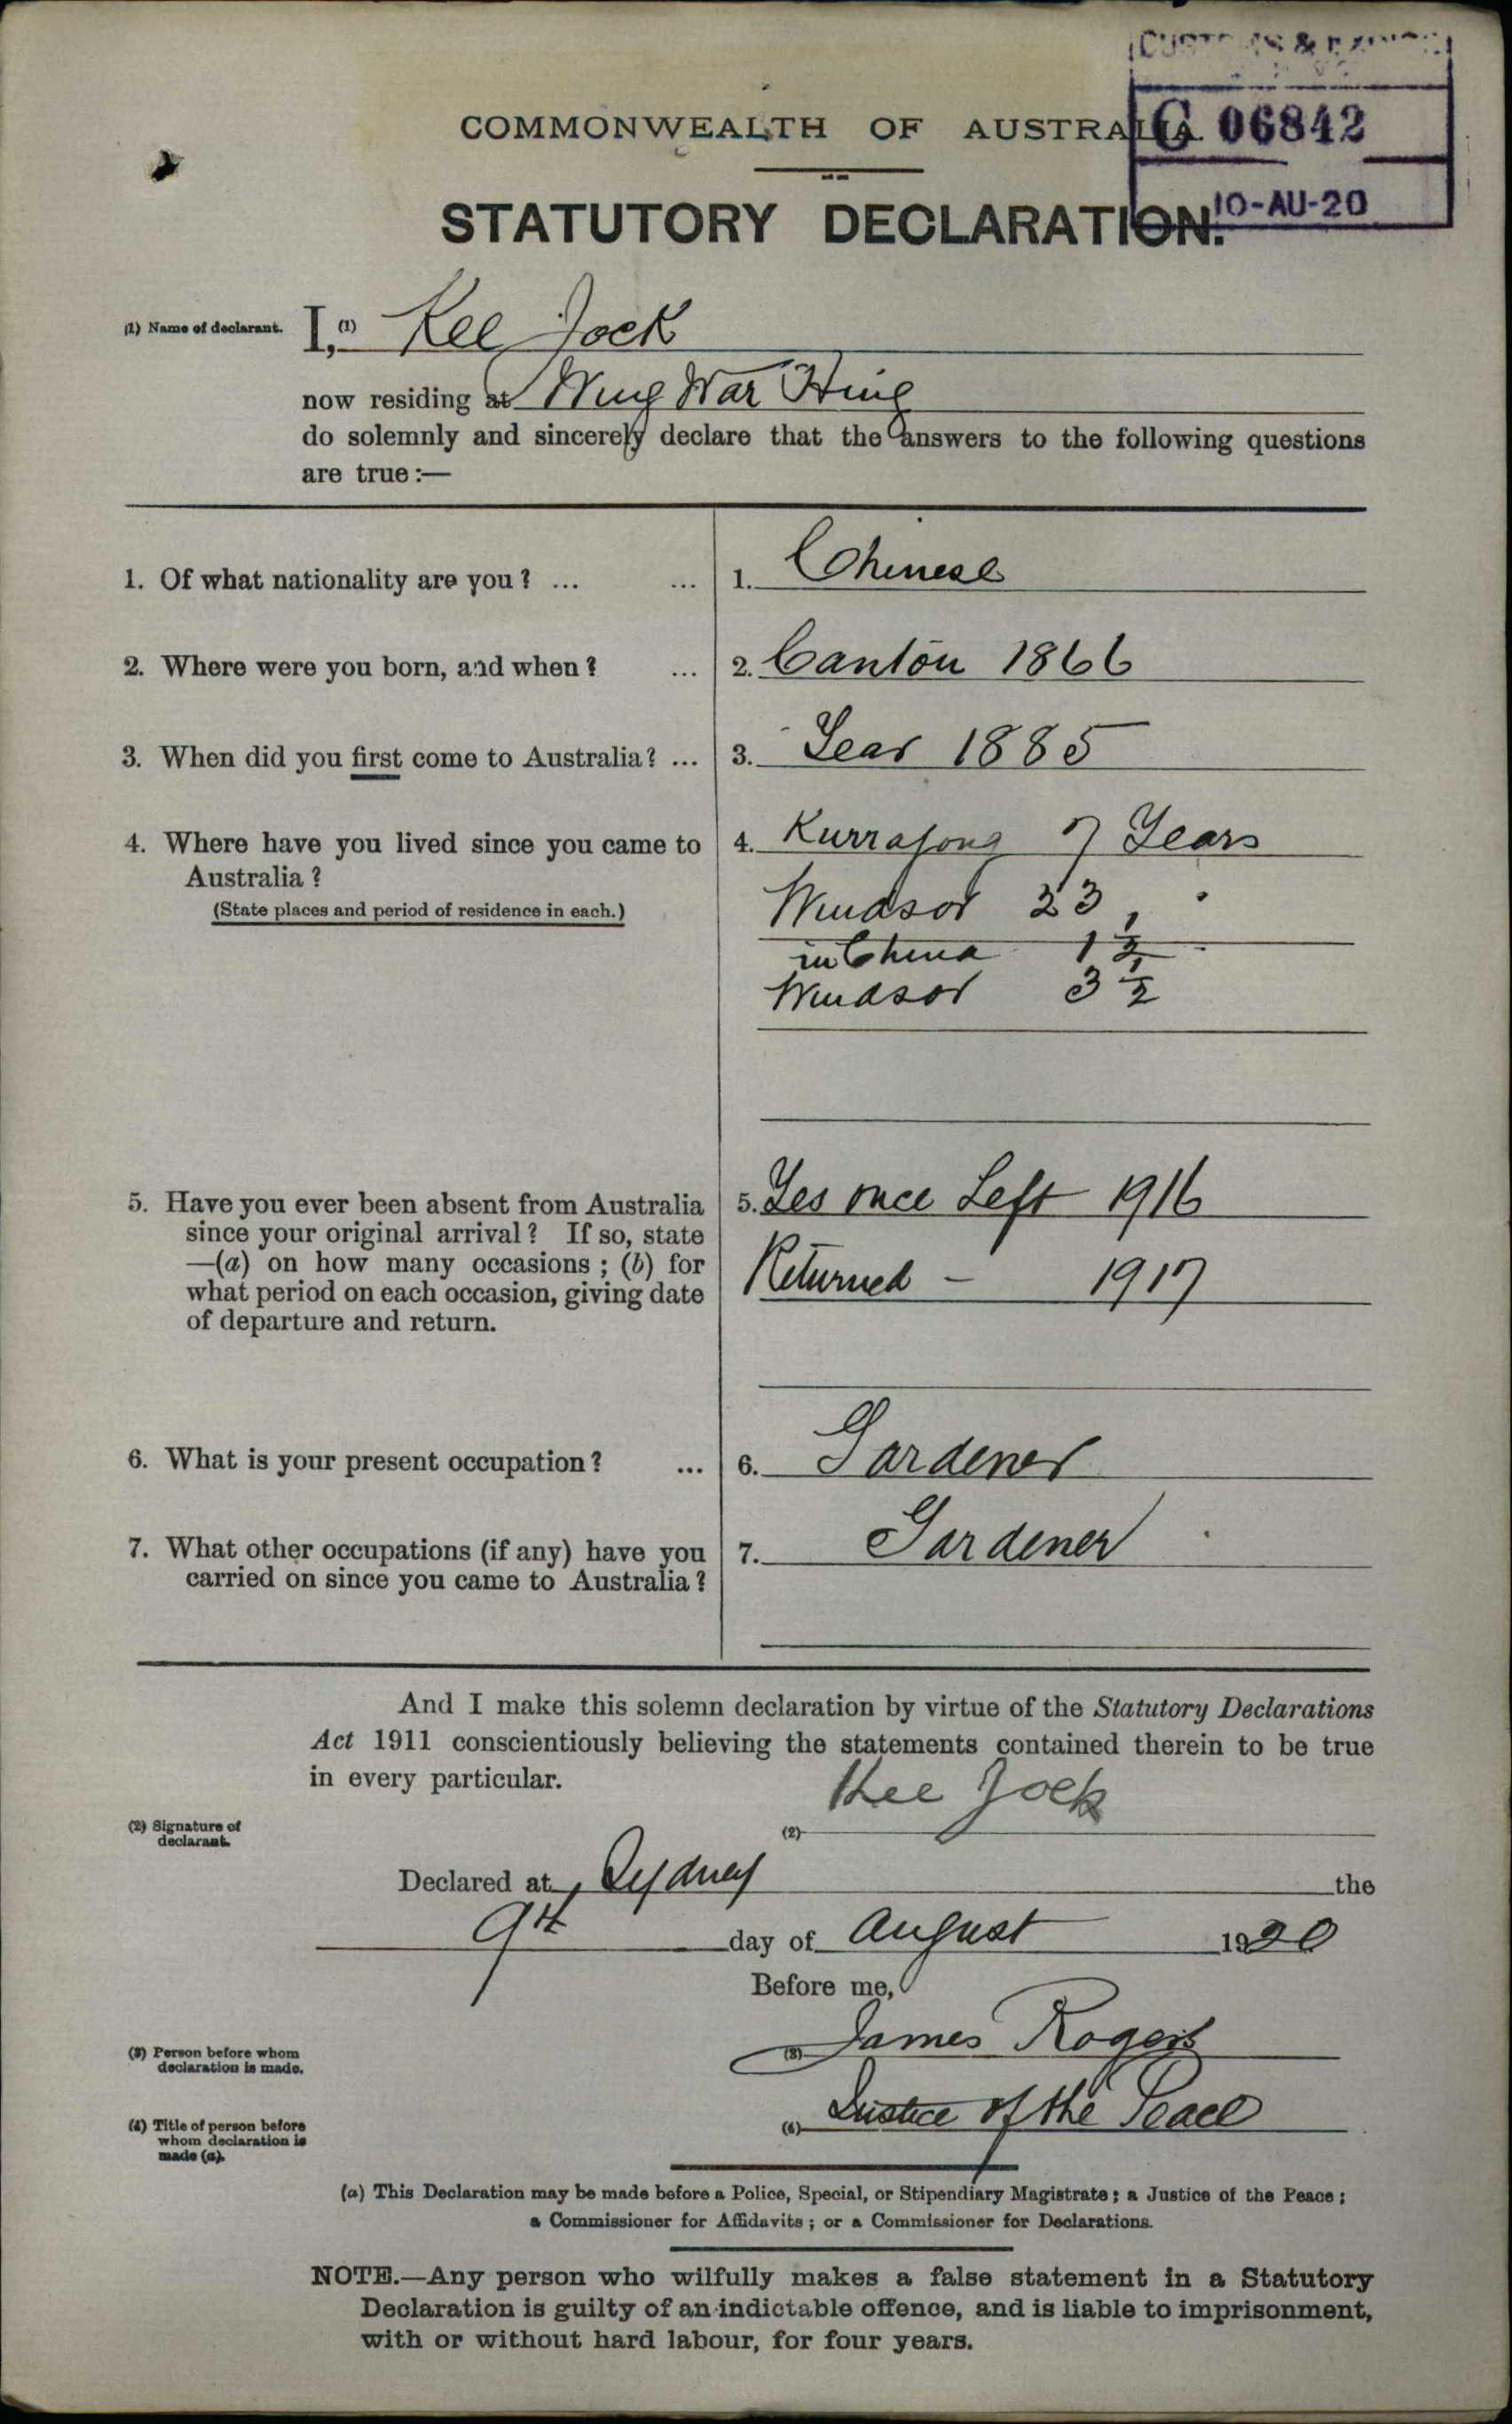 CUSTOMS & EXCISE
COMMONWEALTH OF AUSTRALIA.
C 06842
10-AU-20
STATUTORY DECLARATION.
(1) Name of declarant. I, (1) Kee Jock
now residing at Wing War Hing
do solemnly and sincerely declare that the answers to the following questions
are true:—
1. Of what nationality are you? ... ... 1. Chinese
2. Where were you born, and when? ... 2. Canton 1866
3. When did you first come to Australia? ... 3. Year 1885
4. Where have you lived since you came to 4. Kurrajong 7 Years
Australia?
(State places and period of residence in each.) Windsor 23 "
in China 1 1/2
Windsor 3 1/2
5. Have you ever been absent from Australia 5. Yes once Left 1916
since your original arrival? If so, state
—(a) on how many occasions; (b) for Returned – 1917
what period on each occasion, giving date
of departure and return.
6. What is your present occupation? ... 6. Gardener
7. What other occupations (if any) have you 7. Gardener
carried on since you came to Australia?
And I make this solemn declaration by virtue of the Statutory Declarations
Act 1911 conscientiously believing the statements contained therein to be true
in every particular.
(2) Signature of declarant. (2) Kee Jock
Declared at Sydney the
9th day of August 1920
Before me,
(3) Person before whom declaration is made. (3) James Rogers
(4) Title of person before whom declaration is made (a). (4) Justice of the Peace
(a) This Declaration may be made before a Police, Special, or Stipendiary Magistrate; a Justice of the Peace;
a Commissioner for Affidavits; or a Commissioner for Declarations.
NOTE.—Any person who wilfully makes a false statement in a Statutory
Declaration is guilty of an indictable offence, and is liable to imprisonment,
with or without hard labour, for four years.